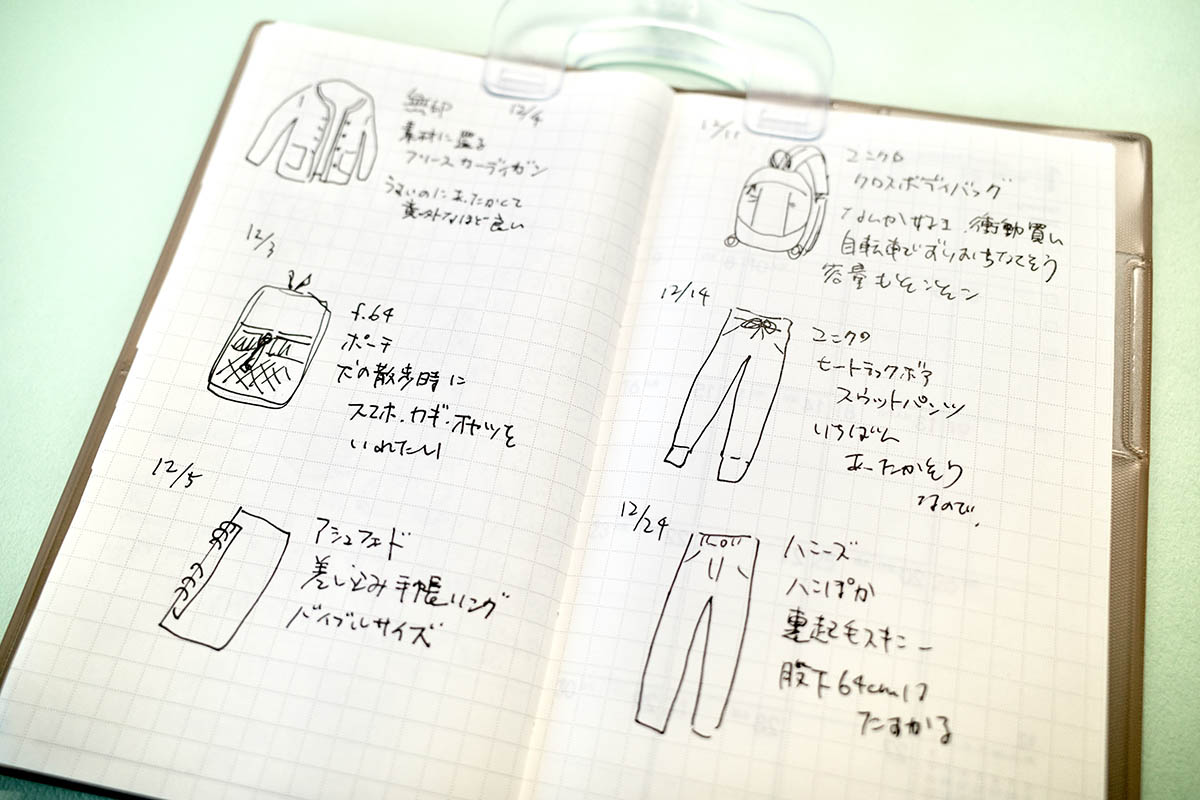 無印 12/4
素材に混る
フリース カーディガン
うすいのにあったかくて
意外なほど良い
12/3
f.64
ポーチ
犬の散歩時に
スマホ・カギ・オヤツを
いれたい
12/5
アシュフォード
差し込み手帳リング
バイブルサイズ
12/11
ユニクロ
クロスボディバッグ
なんか好きっ 衝動買い
自転車で
容量も
12/14
ユニクロ
ヒートテックボア
スウェットパンツ
いちばん
あったかそう
なので、
12/24
ハニーズ
ハニぽか
裏起毛スキニー
股下64cmは
たすかる